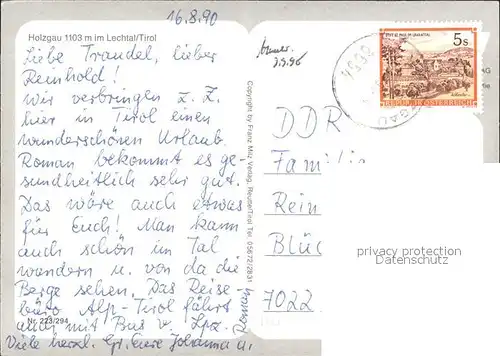 16.8.90
Holzgau 1103 m im Lechtal/Tirol
Liebe Traudel, lieber
Reinhold!
Wir verbringen z. Z.
hier in Tirol einen
wunderschönen Urlaub.
Roman bekommt es ge-
sundheitlich sehr gut.
Das wäre auch etwas
für Euch! Man kann
auch schön im Tal
wandern u. von da die
Berge sehen. Das Reise
büro Alp-Tirol fährt
auch mit Bus v. Lpz.
Nr. 223/294
Viele herzl. Gr. Eure Johanna u.
Roman
Copyright by Franz Milz Verlag, Reutte/Tirol Tel. 05672/2831
3.9.96
5s
REPUBLIK ÖSTERREICH
6654
DDR
Famili
Rein
Blüc
7022
privacy protection
Datenschutz